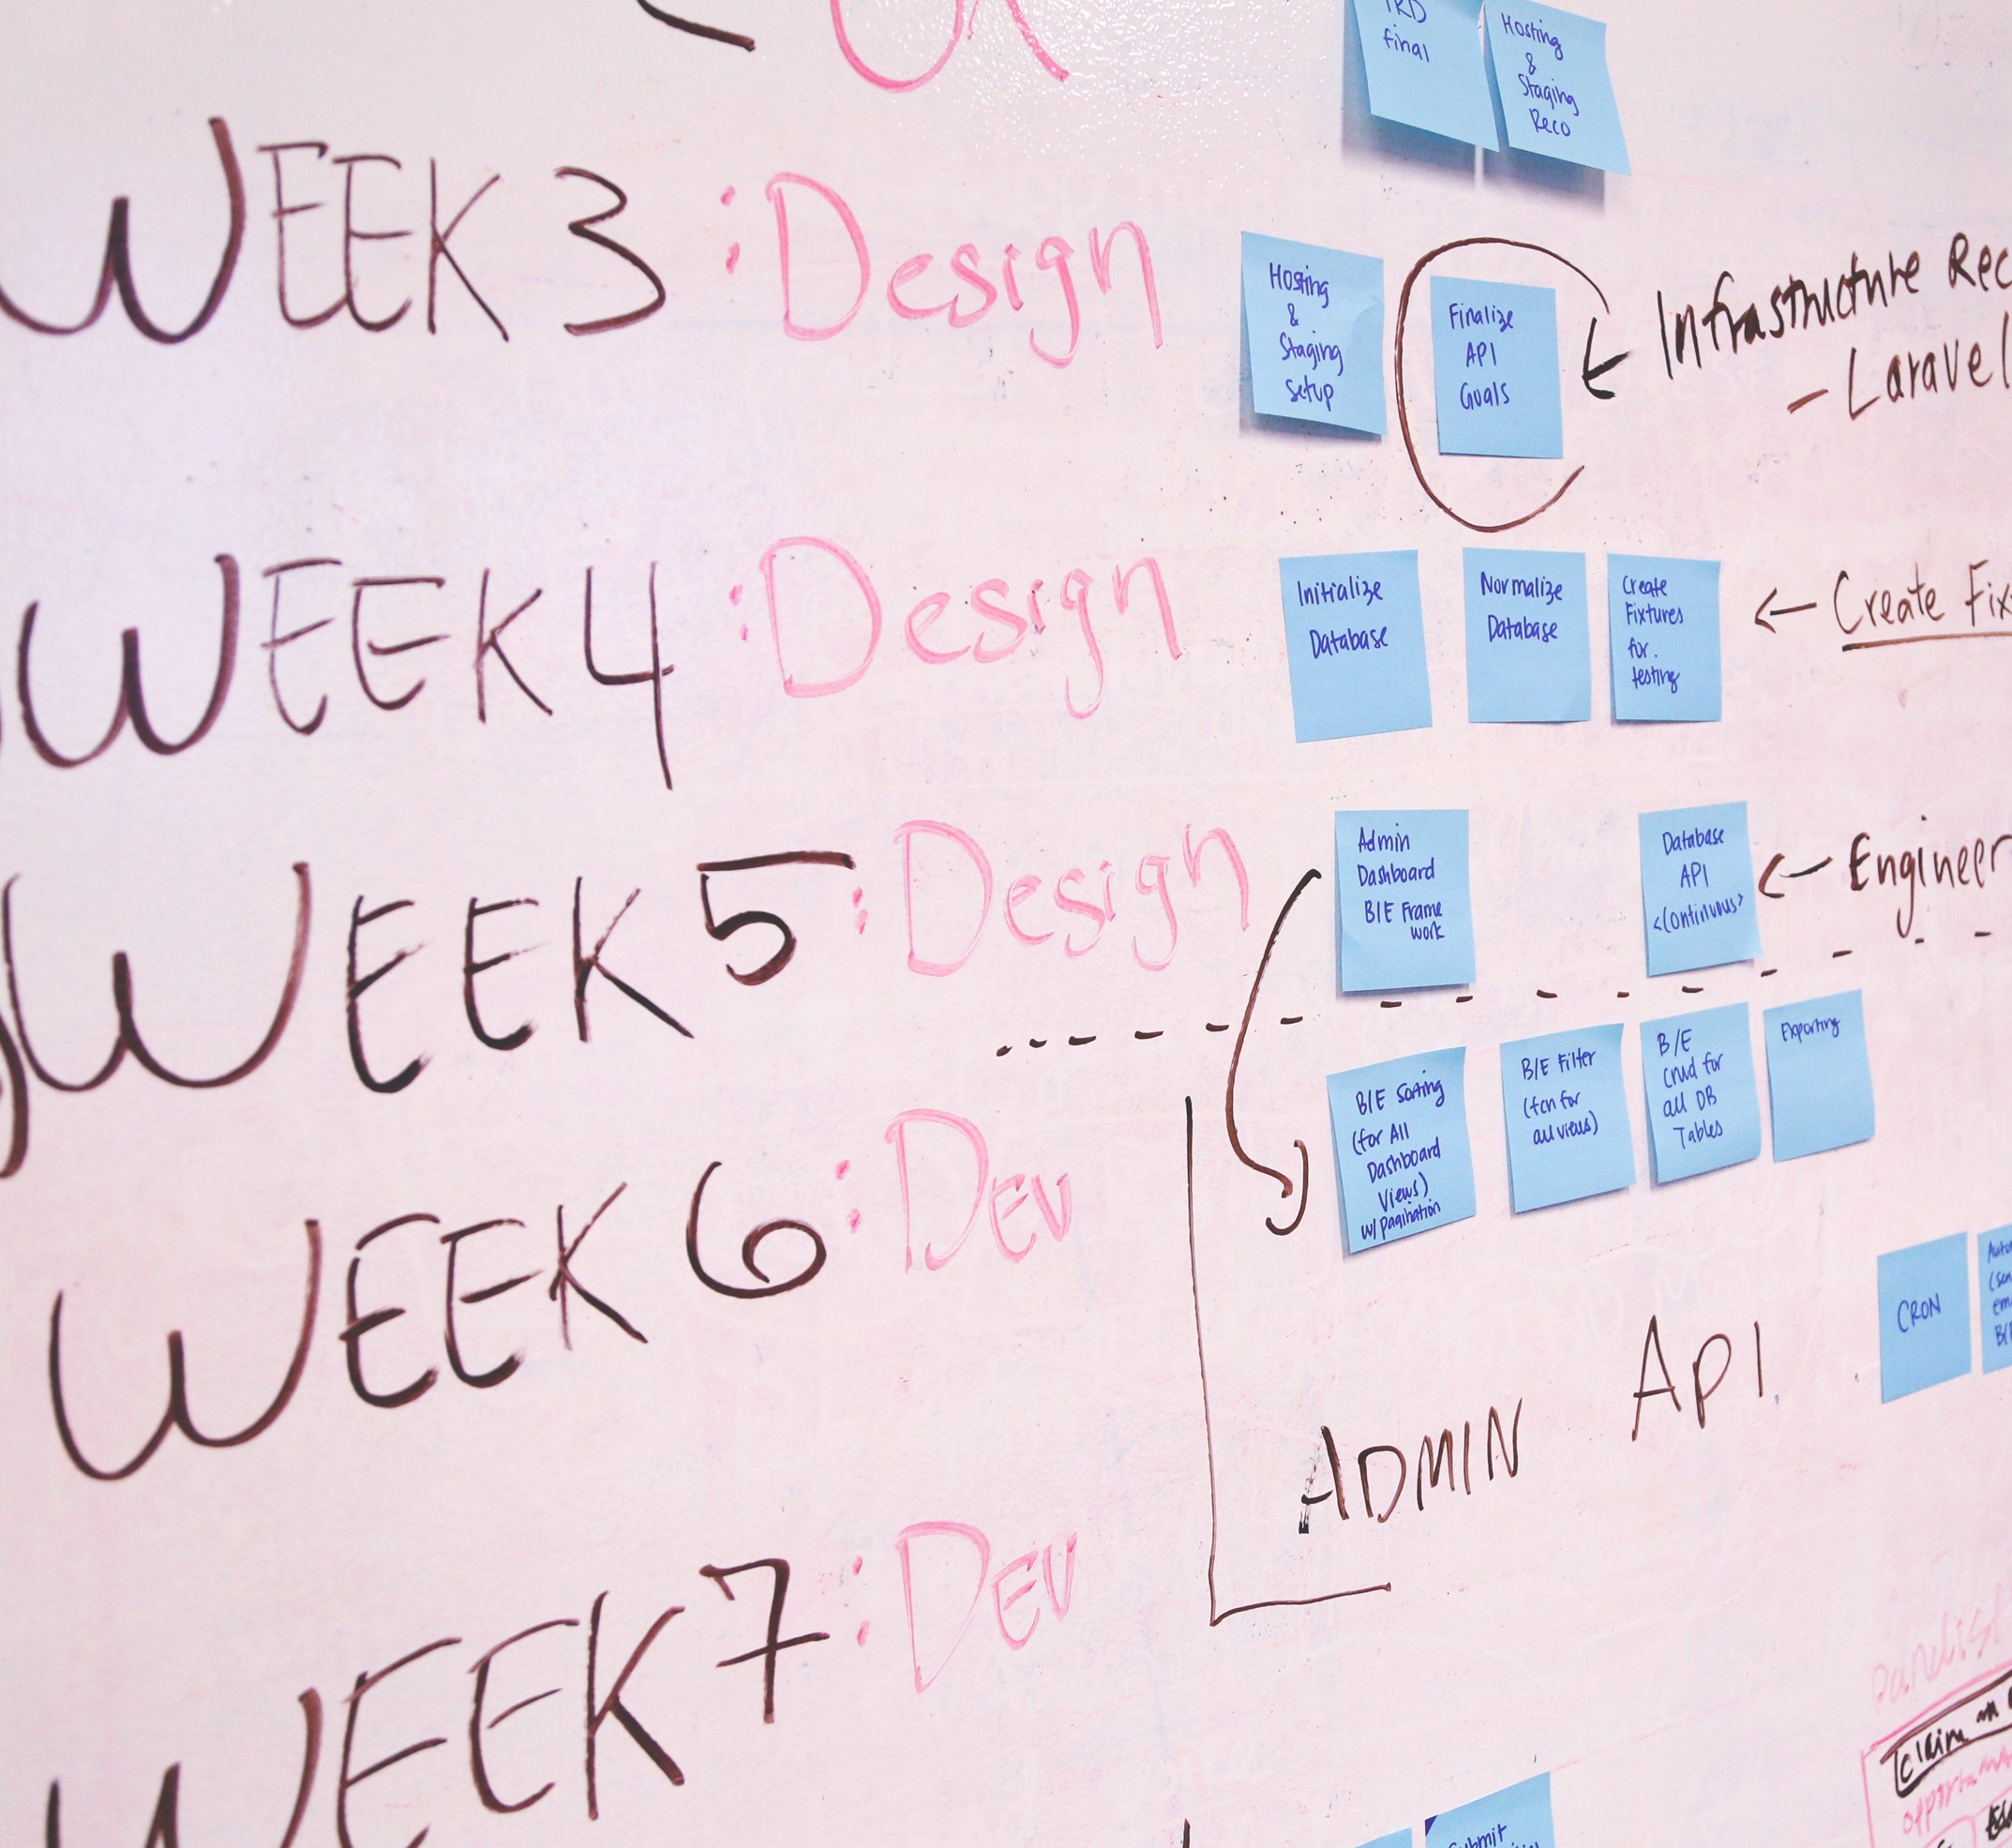 Final
Hosting
&
Staging
Reco
WEEK 3 : Design
Hosting
&
Staging
Setup
Finalize
API
Goals
Infrastructure
- Laravel
WEEK 4 : Design
Initialize
Database
Normalize
Database
Create
Fixtures
for.
testing
Create
WEEK 5 : Design
Admin
Dashboard
B/E Frame
work
Database
API
<Continuous>
Engineer
WEEK 6 : DEV
B/E Sorting
(for All
Dashboard
Views)
w/ Pagination
B/E Filter
(fcn for
all views)
B/E
Crud for
all DB
Tables
Exporting
CRON
ADMIN
API
WEEK 7 : DEV
Submit
Claim an